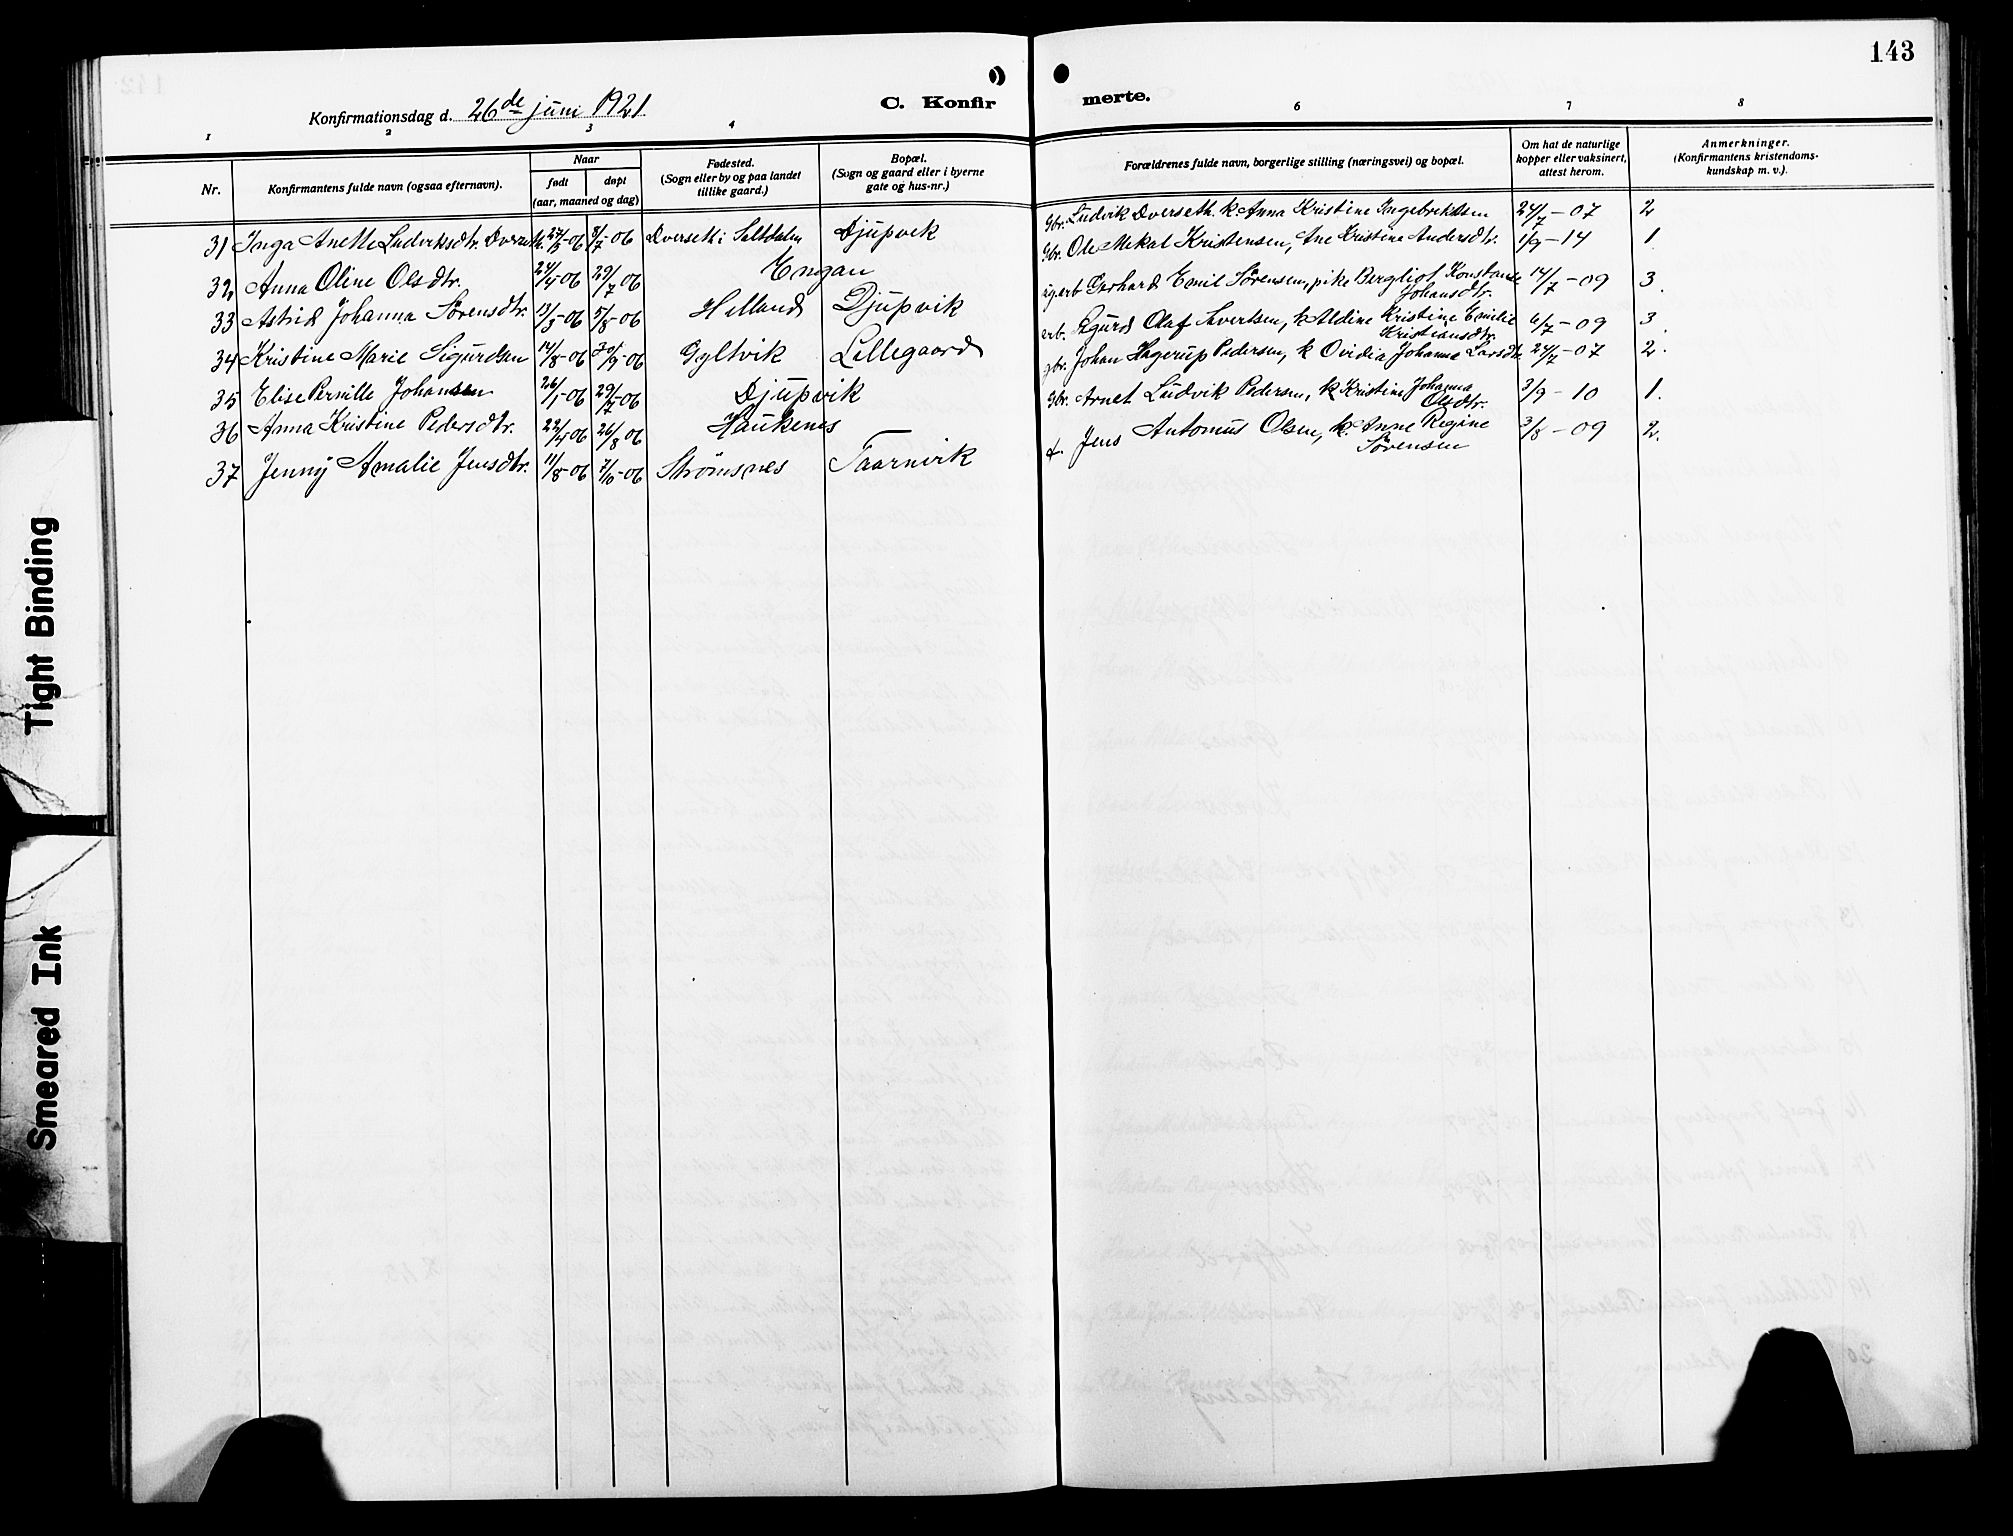 143
Konfirmationsdag d. 26de juni 1921
C. Konfirmerte.
1 2 3 4 6 7 8
Nr.
Konfirmantens fulde navn (ogsaa efternavn).
Naar
født
døpt
(aar, maaned og dag)
Fødested.
(Sogn eller by og paa landet
tillike gaard.)
Bopæl.
(Sogn og gaard eller i byerne
gate og hus-nr.)
Forældrenes fulde navn, borgerlige stilling (næringsvei) og bopæl.
Om hat de naturlige
kopper eller vaksinert,
attest herom.
Anmerkninger.
(Konfirmantens kristendoms-
kundskap m. v.).
31 Inga Anette Ludviksdtr. 8/7-06 Dverseth i Saltdalen Djupvik Gbr. Ludvik Dverseth. k. Anna Kristine Ingebrektsen 24/7-07 2
32 Anna Oline Olsdtr. 24/4 06 29/7 06 Engan Gbr. Ole Mekal Kristensen, Ane Kristine Andersdtr. 1/9-14 1.
33 Astrid Johanna Sörensdtr. 13/3-06 5/8-06 Helland Djupvik Gerhard Emil Sörensen, pike Bergliot Konstanse Johansdtr. 14/7-09 3.
34 Kristine Marie Sigurdsen 14/8-06 30/9-06 Gyltvik Lillegaard arb. Sigurd Olaf Sivertsen, k Aldine Kristine Emilie Kristiansdtr. 6/7-09 3.
35 Elise Pernille Johansen 26/1-06 29/7-06 Djupvik gbr. Johan Hagerup Pedersen, k Ovidia Johanna Larsdtr. 24/7-07 2.
36 Anna Kristine Pedersdtr. 22/4 06 26/8 06 Haukenes Gbr. Arnet Ludvik Pedersen, k Kristine Johanna Olsdtr. 3/9-10 1.
37 Jenny Amalie Jensdtr. 11/8-06 7/10-06 Strömsnes Taarnvik f. Jens Antonius Olsen, k. Anne Regine Sörensen 3/8-09 2.
Tight Binding
Smeared Ink